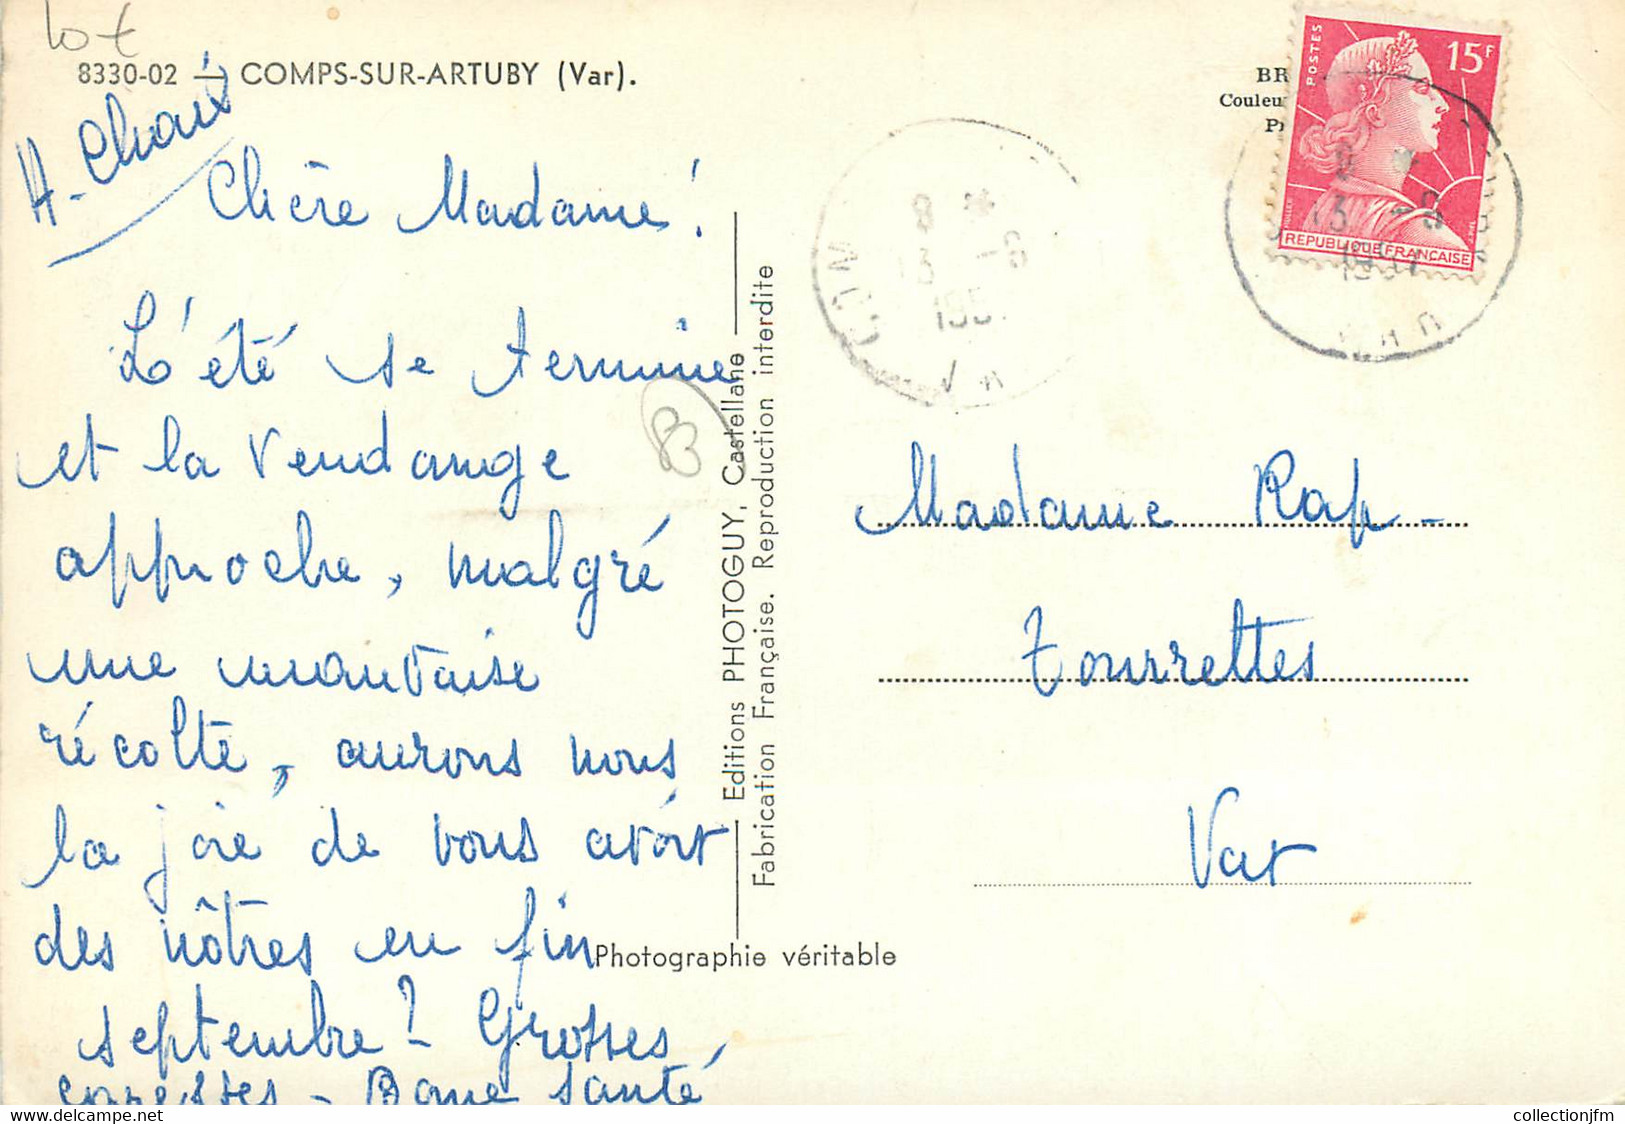 10 €
8330-02 — COMPS-SUR-ARTUBY (Var).
Chère Madame!
L'été se termine
et la Vendange
approche, malgré
une mauvaise
récolte, aurons nous
la joie de vous avoir
des nôtres en fin
septembre? Grosses
caresses - Bonne Santé
83
Editions PHOTOGUY, Castellane
Fabrication Française. Reproduction interdite
Photographie véritable
BR
Couleu
POSTES
15F
REPUBLIQUE FRANÇAISE
8 *
13 -9
1957
VAR
8 *
13 -9
195
Madame Rap-
Tourrettes
Var
www.delcampe.net
collectionjfm